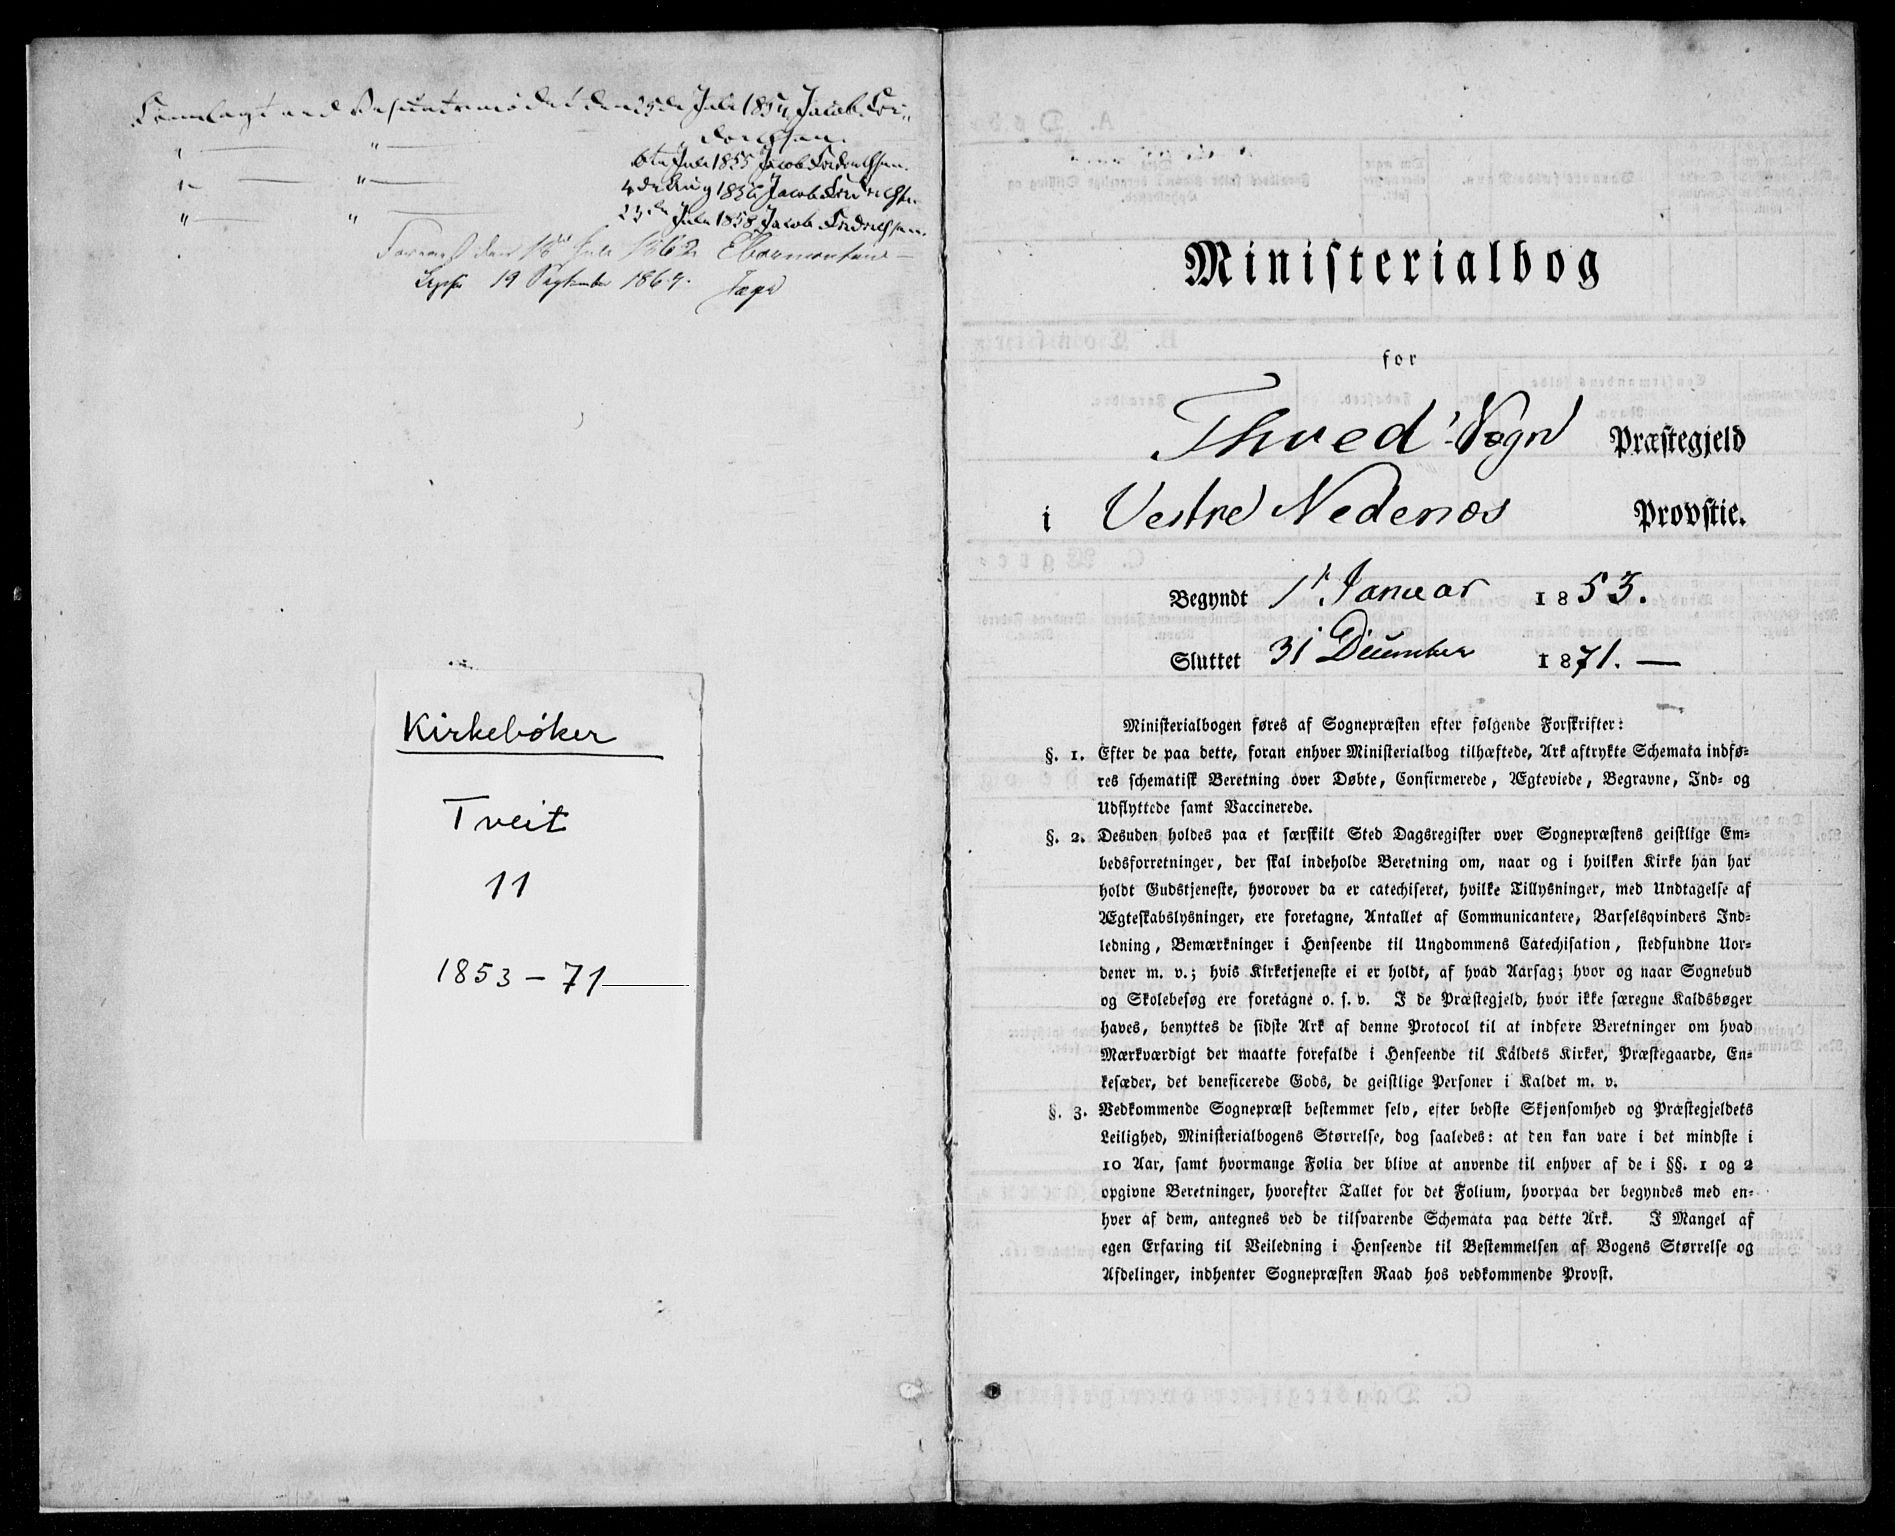 Fremlagt ved den 25de Juli 1854 Jacob Frie=
drichsen.
" " 6te Juli 1855 Jacob Friedrichsen.
" " 4de Aug 1856 Jacob Friedrichsen.
" " 23de Juli 1858 Jacob Friedrichsen.
den 18de Juli 1862
19 September 1864.
Kirkebøker
Tveit
11
1853-71
Ministerialbog
for
Thved Sogn Præstegjeld
i Vestre Nedenæs Provstie.
Begyndt 1st Januar 1853.
Sluttet 31 December 1871. —
Ministerialbogen føres af Sognepræsten efter følgende Forskrifter:
§. 1. Efter de paa dette, foran enhver Ministerialbog tilhæftede, Ark aftrykte Schemata indfø=
res schematisk Beretning over Døbte, Confirmerede, Ægteviede, Begravne, Ind= og
Udflyttede samt Vaccinerede.
§. 2. Desuden holdes paa et særskilt Sted Dagsregister over Sognepræstens geistlige Em=
bedsforretninger, der skal indeholde Beretning om, naar og i hvilken Kirke han har
holdt Gudstjeneste, hvorover da er catechiseret, hvilke Tillysninger, med Undtagelse af
Ægteskabslysninger, ere foretagne, Antallet af Communicantere, Barselqvinders Ind=
ledning, Bemærkninger i Henseende til Ungdommens Catechisation, stedfundne Uor=
dener m. v.; hvis Kirketjeneste ei er holdt, af hvad Aarsag; hvor og naar Sognebud
og Skolebesøg ere foretagne o. s. v. I de Præstegjeld, hvor ikke særegne Kaldsbøger
haves, benyttes de sidste Ark af denne Protocol til at indføre Beretninger om hvad
Mærkværdigt der maatte forefalde i Henseende til Kaldets Kirker, Præstegaarde, En=
kesæder, det beneficerede Gods, de geistlige Personer i Kaldet m. v.
§. 3. Vedkommende Sognepræst bestemmer selv, efter bedste Skjønsomhed og Præstegjeldets
Leilighed, Ministerialbogens Størrelse, dog saaledes: at den kan vare i det mindste i
10 Aar, samt hvormange Folia der blive at anvende til enhver af de i §§. 1 og 2
opgivne Beretninger, hvorefter Tallet for det Folium, hvorpaa der begyndes med en=
hver af dem, antegnes ved de tilsvarende Schemata paa dette Ark. I Mangel af
egen Erfaring til Veiledning i Henseende til Bestemmelsen af Bogens Størrelse og
Afdelinger, indhenter Sognepræsten Raad hos vedkommende Provst.